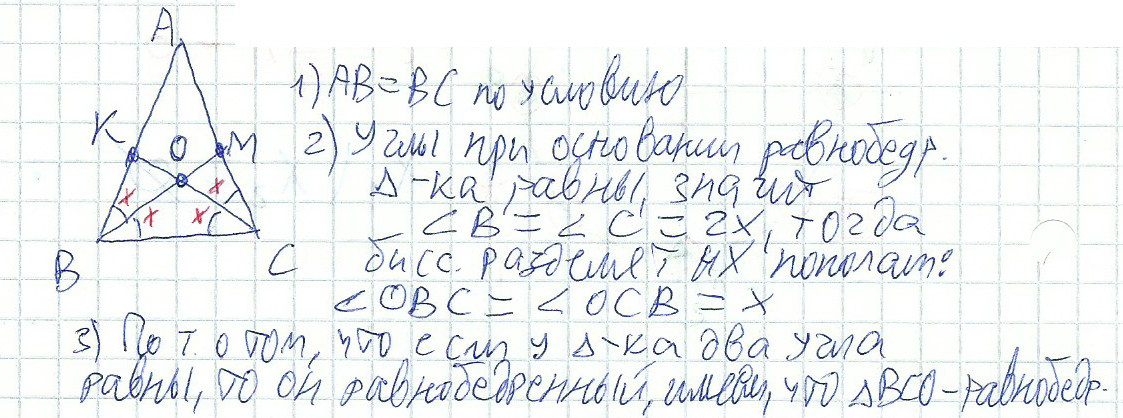 A
K
O
M
x
x
x
x
B
C
1) AB=BC по условию
2) Углы при основании равнобедр.
Δ-ка равны, значит
∠B = ∠C = 2x, тогда
бисс. разделят их пополам:
∠OBC = ∠OCB = x
3) По т. о том, что если у Δ-ка два угла
равны, то он равнобедренный, имеем, что ΔBCO-равнобедр.